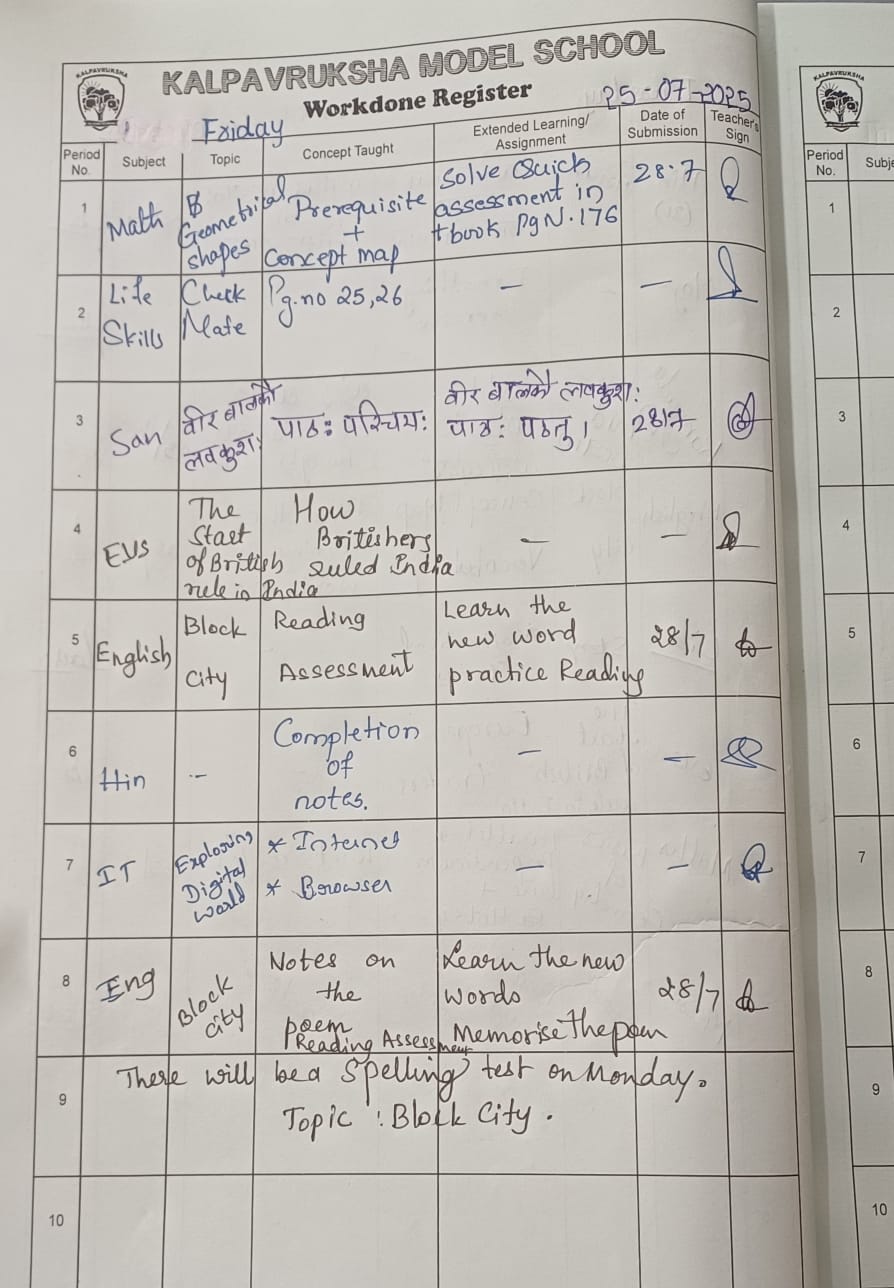 KALPAVRUKSHA
KALPAVRUKSHA MODEL SCHOOL
Workdone Register
Friday
25-07-2025
Period No.
Subject
Topic
Concept Taught
Extended Learning/ Assignment
Date of Submission
Teacher's Sign
1
Math
Geometrical shapes
Prerequisite + Concept map
Solve Quick assessment in tbook PgN.176
28.7
2
Life Skills
Check Mate
Pg.no 25,26
—
—
3
San
वीर बालकौ लवकुशः
पाठः परिचयः
वीर बालकौ लवकुशः पाठः पठतु।
28/7
4
EVS
The Start of British rule in India
How Britishers ruled India
—
—
5
English
Block City
Reading Assessment
Learn the new word practice Reading
28/7
6
Hin
—
Completion of notes.
—
—
7
IT
Exploring Digital World
* Internet
* Browser
—
—
8
Eng
Block City
Notes on the poem
Reading Assessment
Learn the new words
Memorise The poem
28/7
9
There will be a Spelling test on Monday.
Topic : Block City.
10
KALPAVRUKSHA
Period No.
Subje
1
2
3
4
5
6
7
8
9
10